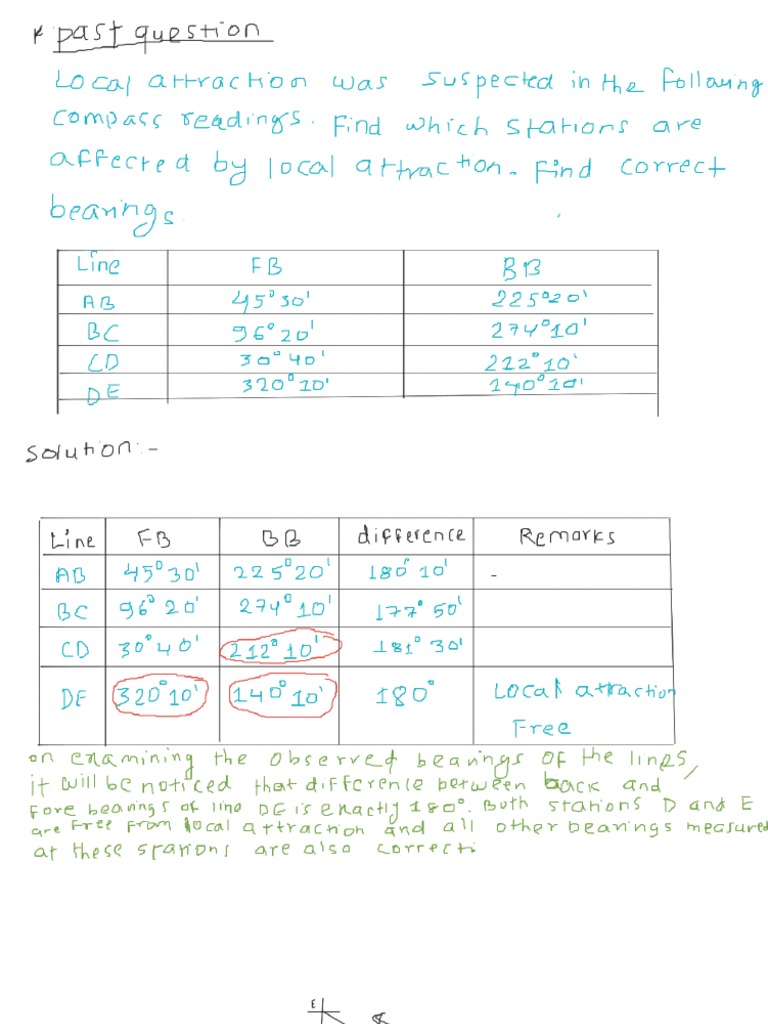 * past question
Local attraction was suspected in the following
compass readings. Find which stations are
affected by local attraction. Find correct
bearings.
Line FB BB
AB 45°30' 225°20'
BC 96°20' 274°10'
CD 30°40' 212°10'
DE 320°10' 140°10'
Solution:-
Line FB BB difference Remarks
AB 45°30' 225°20' 180°10' -
BC 96°20' 274°10' 177°50'
CD 30°40' 212°10' 181°30'
DE 320°10' 140°10' 180° Local attraction
Free
on examining the observed bearings of the lines,
it will be noticed that difference between back and
Fore bearings of line DE is exactly 180°. Both stations D and E
are free from local attraction and all other bearings measured
at these stations are also correct.
E